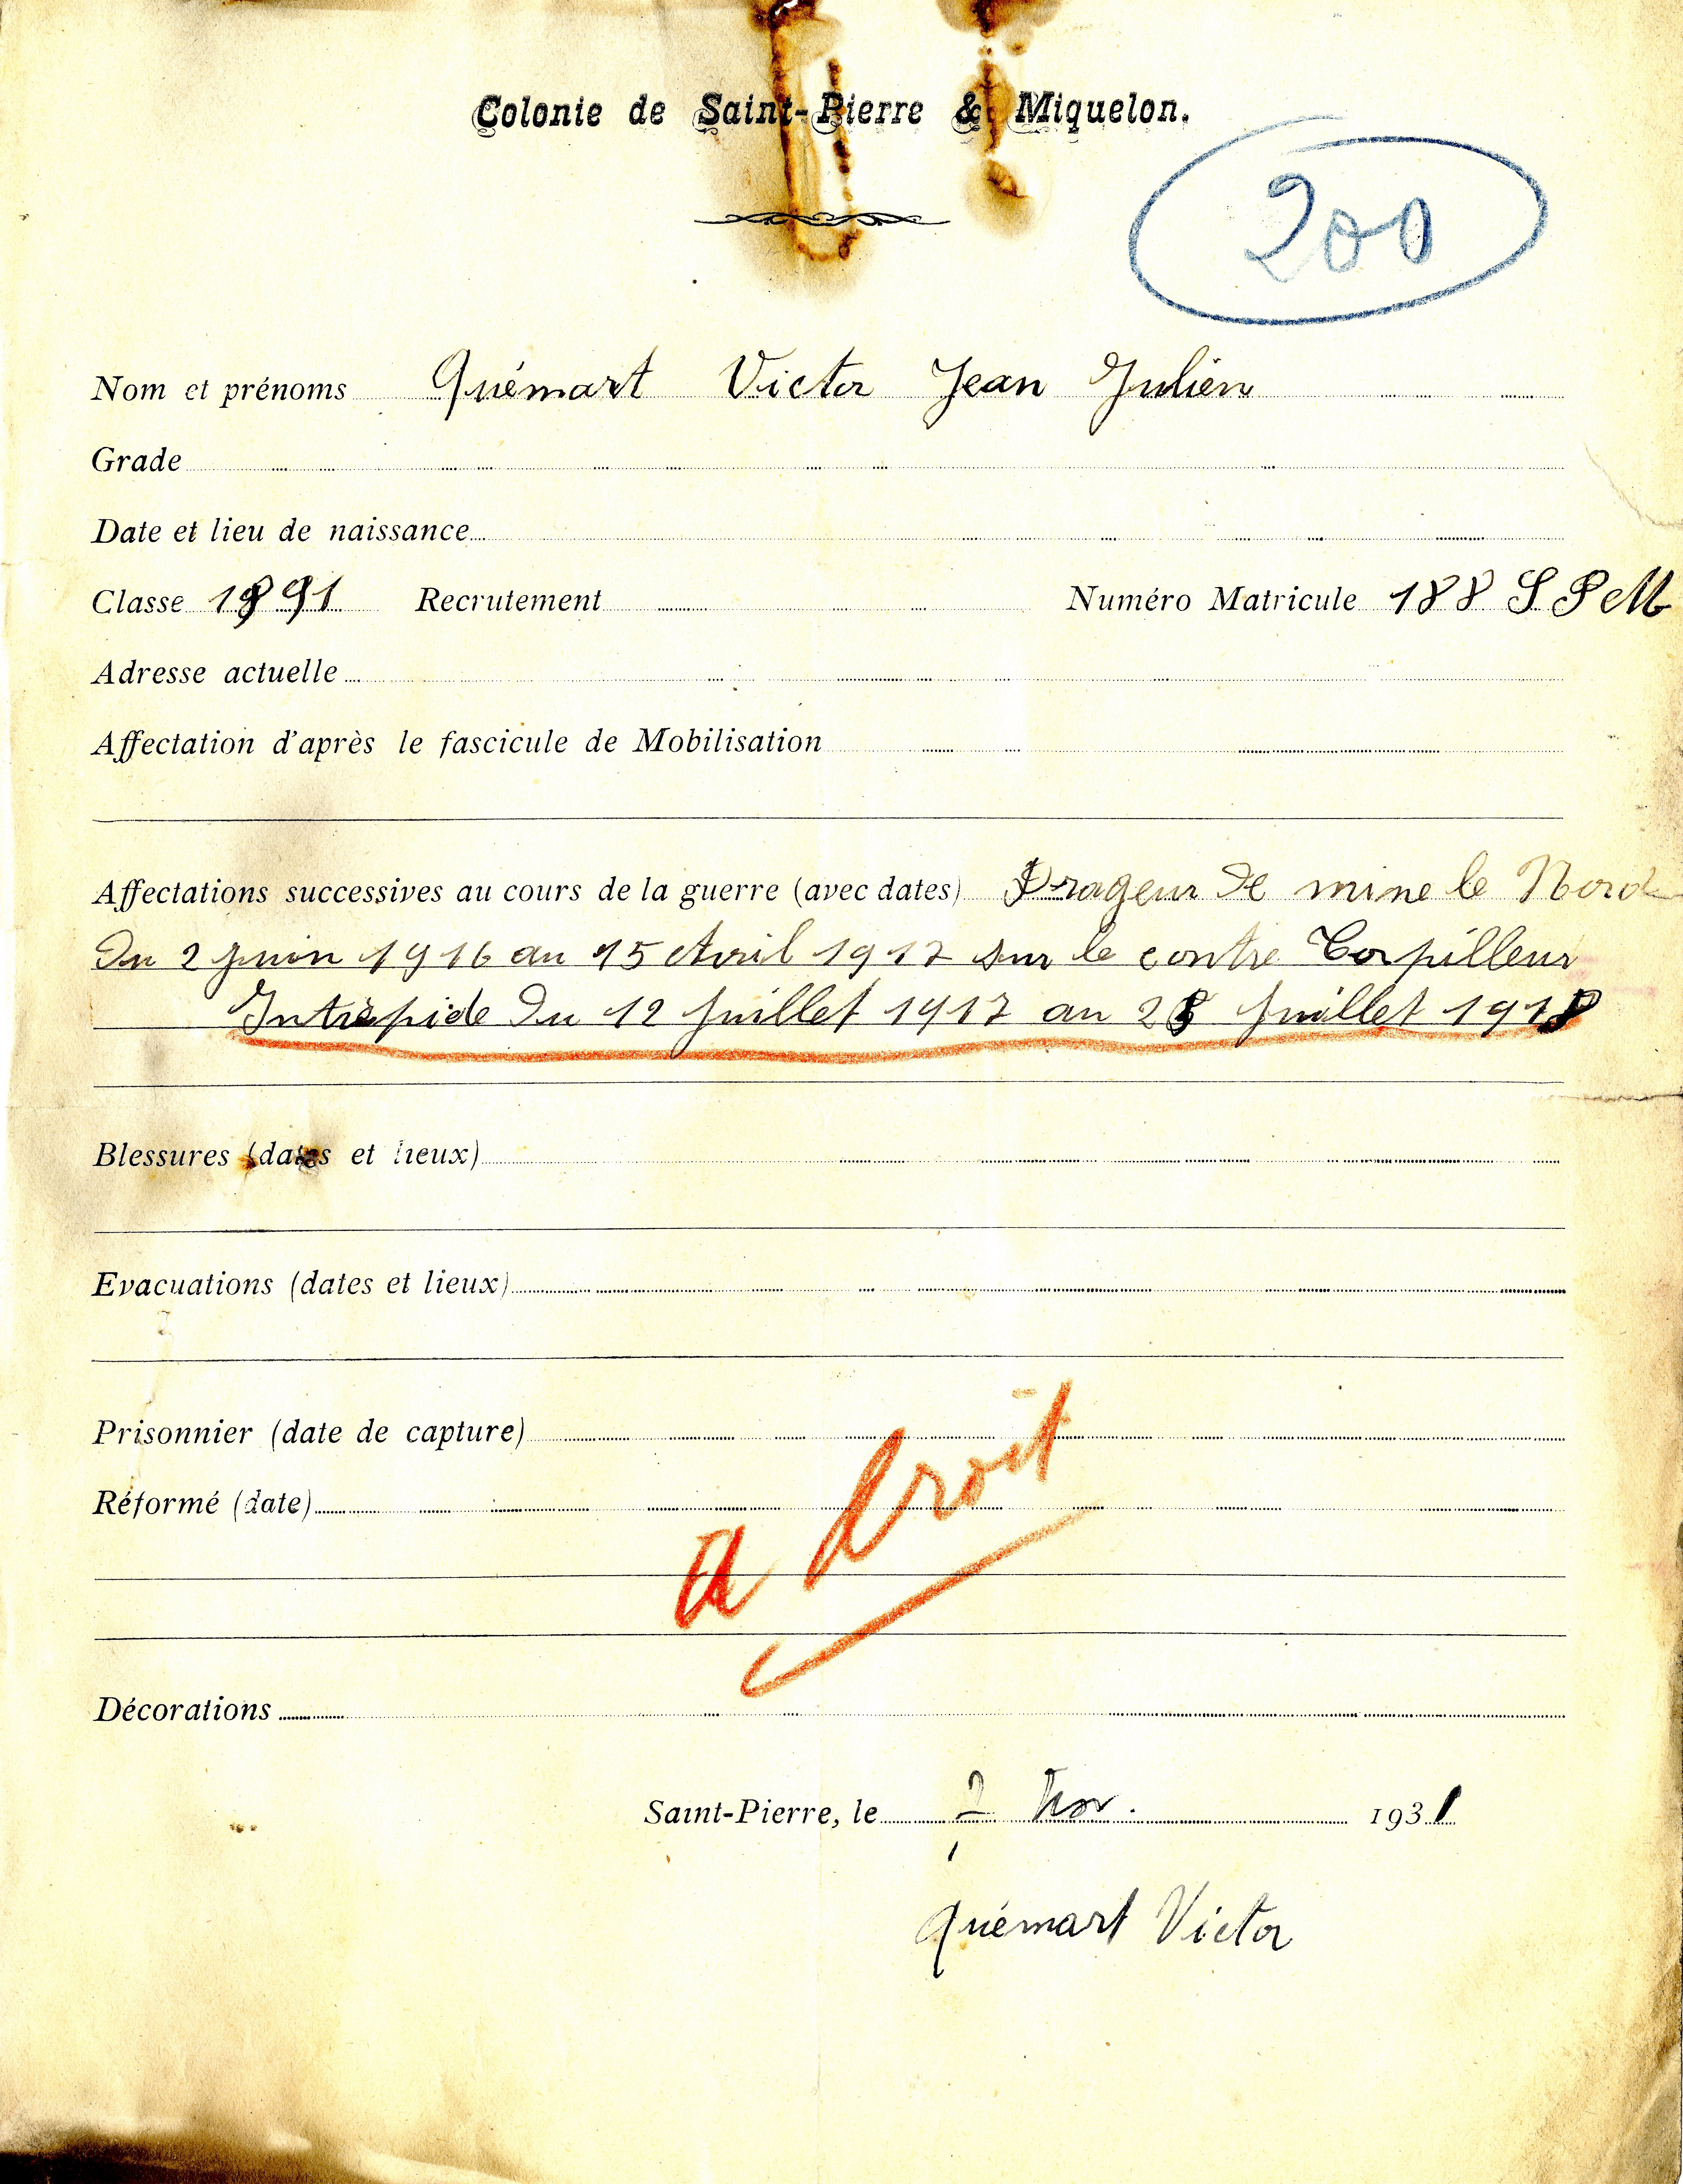 Colonie de Saint-Pierre & Miquelon.
200
Nom et prénoms Quémart Victor Jean Julien
Grade
Date et lieu de naissance
Classe 1891 Recrutement Numéro Matricule 188 S P M
Adresse actuelle
Affectation d'après le fascicule de Mobilisation
Affectations successives au cours de la guerre (avec dates) Drageur de mine le Nord
Du 2 Juin 1916 au 15 Avril 1917 sur le contre Torpilleur
Intrépide Du 12 Juillet 1917 au 28 Juillet 1918
Blessures (dates et lieux)
Evacuations (dates et lieux)
Prisonnier (date de capture)
Réformé (date)
a droit
Décorations
Saint-Pierre, le 2 Nov. 1931
Quémart Victor